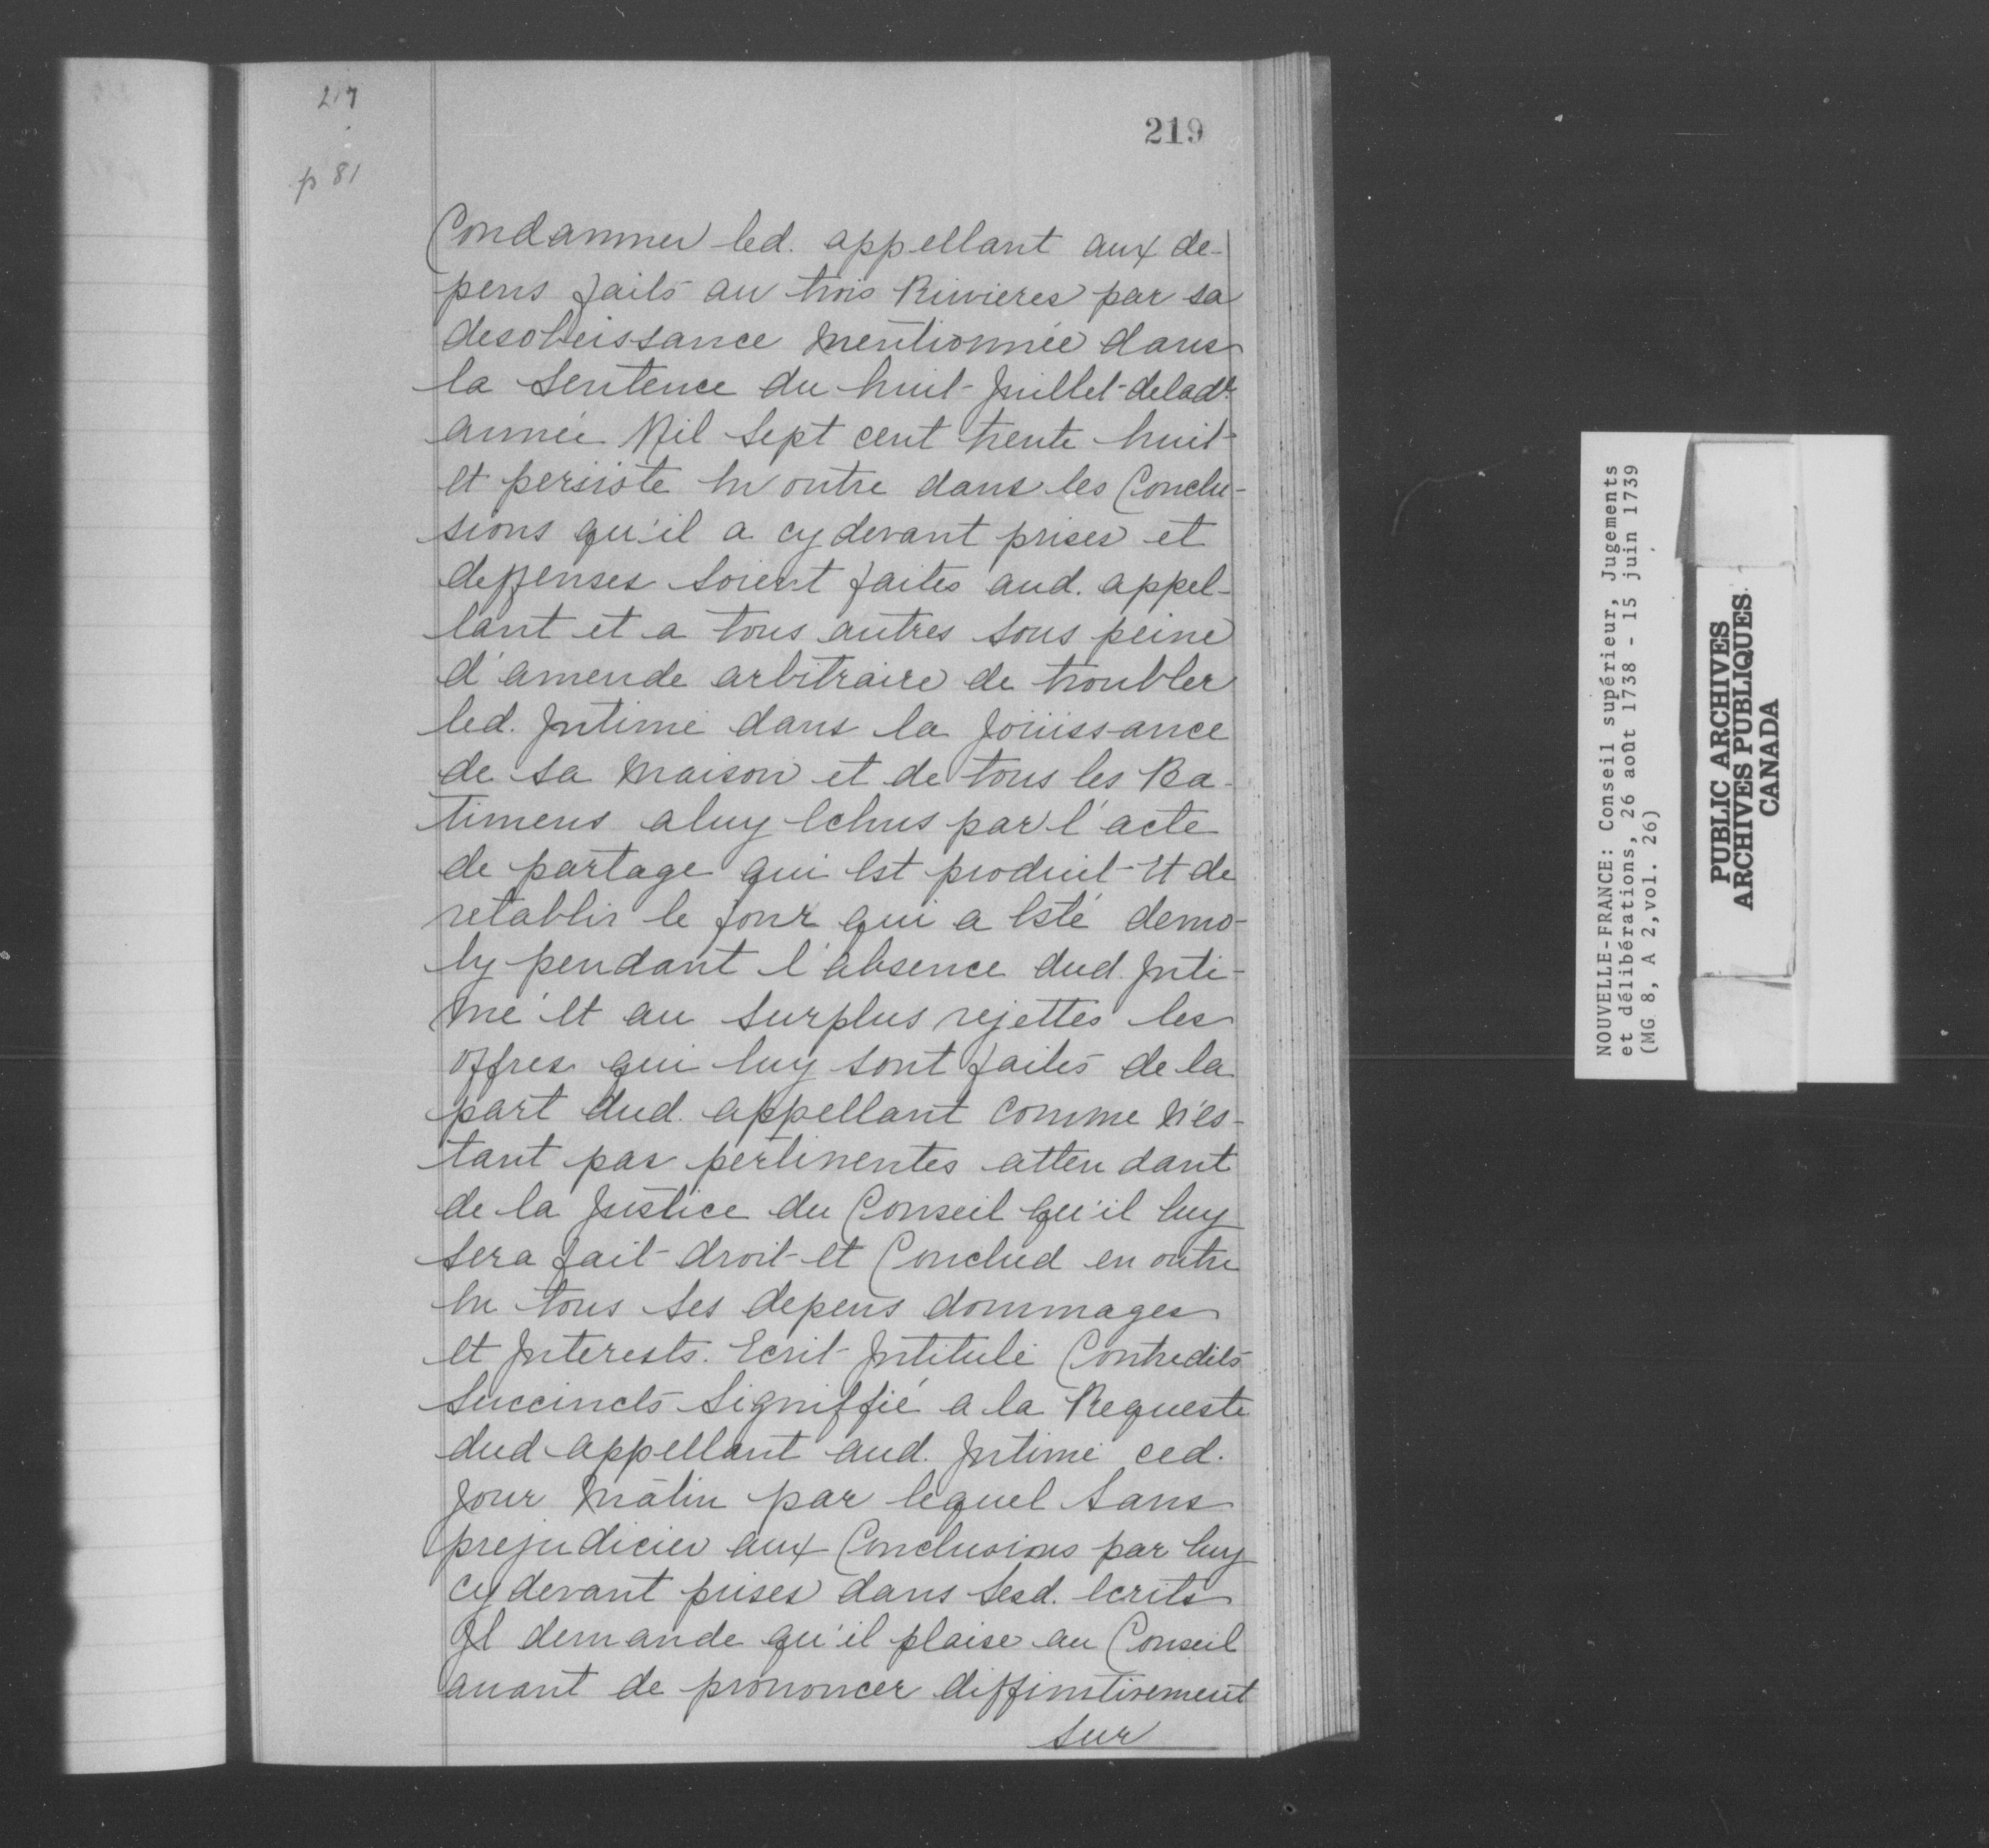 217
p 81
219
Condamner led. appellant aux de-
pens faits au trois Rivieres par sa
desobeissance mentionnée dans
la Sentence du huit Juillet delade
année Mil Sept cent trente huit
et persiste En outre dans les Conclu-
sions qu'il a cy devant prises et
deffenses soient faites aud. appel-
lant et a tous autres sous peine
d'amende arbitraire de troubler
led. Intimé dans la Joüissance
de sa Maison et de tous les Ba-
timens a luy Echus par l'acte
de partage qui Est produit Et de
retablir le four qui a Esté demo-
ly pendant l'absence dud. Inti-
mé Et au Surplus rejettes les
offres qui luy sont faites de la
part dud. appellant comme N'es-
tant pas pertinentes attendant
de la Justice du Conseil qu'il luy
sera fait droit et Conclud en outre
En tous ses depens dommages
Et Interests. Ecrit Intitulé Contredits
Succincts Signiffié a la Requeste
dud appellant aud. Intimé ced.
Jour Matin par lequel Sans
prejudicier aux Conclusions par luy
cy devant prises dans sesd. Ecrits
Il demande qu'il plaise au Conseil
avant de prononcer diffinitivement
sur
NOUVELLE-FRANCE: Conseil supérieur, Jugements
et délibérations, 26 août 1738 - 15 juin 1739
(MG 8, A 2,vol. 26)
PUBLIC ARCHIVES
ARCHIVES PUBLIQUES
CANADA